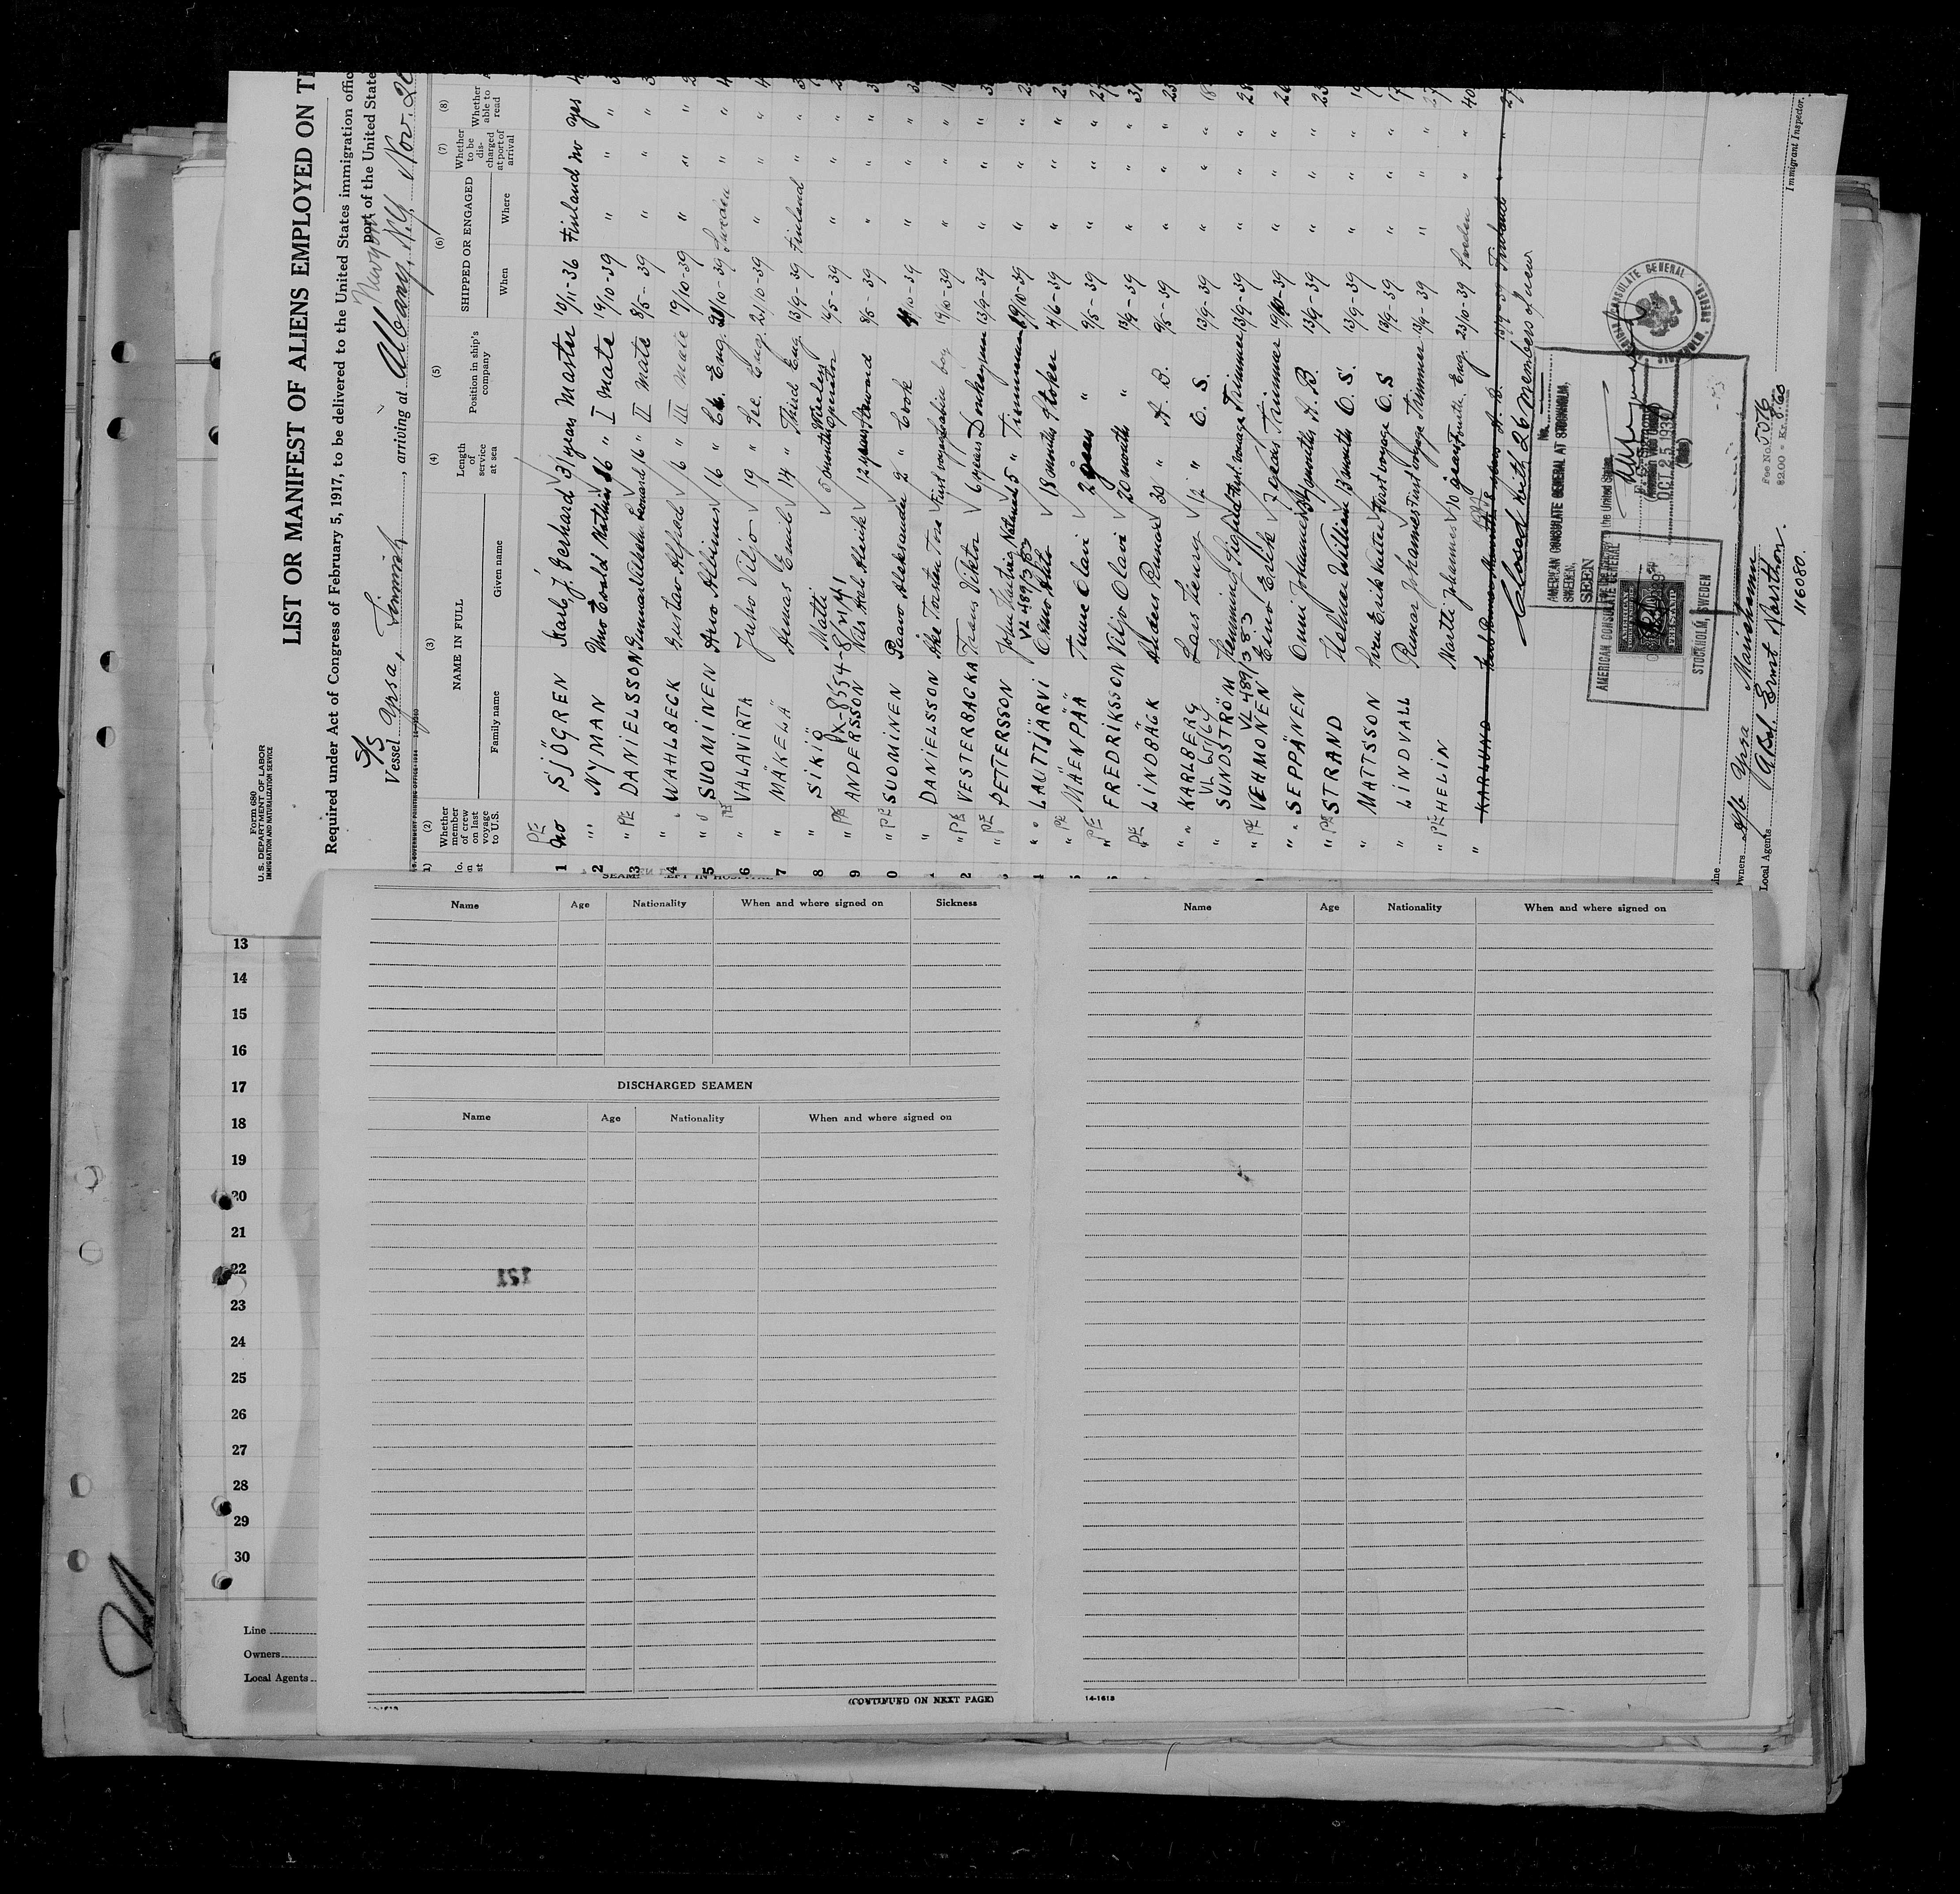 Form 680
U. S. DEPARTMENT OF LABOR
IMMIGRATION AND NATURALIZATION SERVICE
LIST OR MANIFEST OF ALIENS EMPLOYED ON
Required under Act of Congress of February 5, 1917, to be delivered to the United States immigration
port of the United State
S/S
Vessel Yrsa, Finnish, arriving at Albany, N.Y. Nov. 20
(2) (3) (4) (5) (6) (7) (8)
Whether member of crew on last voyage to U.S.
NAME IN FULL
Family name Given name
Length of service at sea
Position in ship's company
SHIPPED OR ENGAGED
When Where
Whether to be discharged at port of arrival
Whether able to read
PE
1 no SJÖGREN Karl J. Gerhard 31 years Master 10/11-36 Finland no yes
2 " NYMAN Uno Evald 16 " I Mate 19/10-39 " " "
3 " PE DANIELSSON Gunnar Vilhelm 16 " II Mate 8/5-39 " " "
4 " WAHLBECK Gustav Alfred 16 " III Mate 19/10-39 " " "
5 " SUOMINEN Arvo Albinus 16 " Ch. Eng. 21/10-39 Sweden " "
6 " VALAVIRTA Juho Viljo 19 " Sec. Eng. 21/10-39 " " "
7 " MÄKELÄ Armas Emil 14 " Third Eng. 13/9-39 Finland " "
8 " SIKIÖ Matti 5 months Wireless Operator 16/5-39 " " "
9 " PE ANDERSSON Karl 12 years Steward 8/5-39 " " "
0 " PE SUOMINEN Paavo Aleksander 2 " Cook 10-39 " " "
" DANIELSSON Åke Torsten First voyage Cabin boy 19/10-39 " " "
2 " PE VESTERBACKA Frans Viktor 6 years Donkeyman 13/9-39 " " "
" PE PETTERSSON John 5 " 19/10-39 " " "
VL 489/383
" LAUTTJÄRVI Osmo Ahto 18 months Stoker 4/6-39 " " "
" PE MÄENPÄÄ Tunne Olavi 2 years " 9/5-39 " " "
" PE FREDRIKSSON Viljo Olavi 20 months " 13/9-39 " " "
" PE LINDBÄCK Anders Runar 30 " A. B. 9/5-39 " " "
" KARLBERG Lars Henry 12 " O. S. 13/9-39 " " "
" SUNDSTRÖM Henning Sigfrid First voyage Trimmer 13/9-39 " " "
VL 489/383
" PE VEHMONEN Eino Erick 7 years Trimmer 19/10-39 " " "
" SEPPÄNEN Onni Johannes months A. B. 13/9-39 " " "
" PE STRAND Helmer William 13 months O. S. 13/9-39 " " "
" MATTSSON Sven Erik First voyage O. S. 13/9-39 " " "
" LINDVALL Runar Johannes First voyage Trimmer 13/9-39 " " "
" PE HELIN Martti Johannes 10 years Fourth Eng. 23/10-39 " "
" KARLUND A. B. 13/9-39 Finland " "
Closed with 26 members of crew
No.
AMERICAN CONSULATE GENERAL AT STOCKHOLM,
SWEDEN,
SEEN
the United States
OCT 25 1939
AMERICAN CONSULATE GENERAL
STOCKHOLM, SWEDEN
Fee No. 5076
$2.00 = Kr.
116080
Line
Owners
Local Agents Abel Ernst Northon.
Immigrant Inspector.
SEAMEN LEFT IN HOSPITAL
Name Age Nationality When and where signed on Sickness
DISCHARGED SEAMEN
Name Age Nationality When and where signed on
(CONTINUED ON NEXT PAGE)
Name Age Nationality When and where signed on
14-1613
13
14
15
16
17
18
19
20
21
22
23
24
25
26
27
28
29
30
Line
Owners
Local Agents